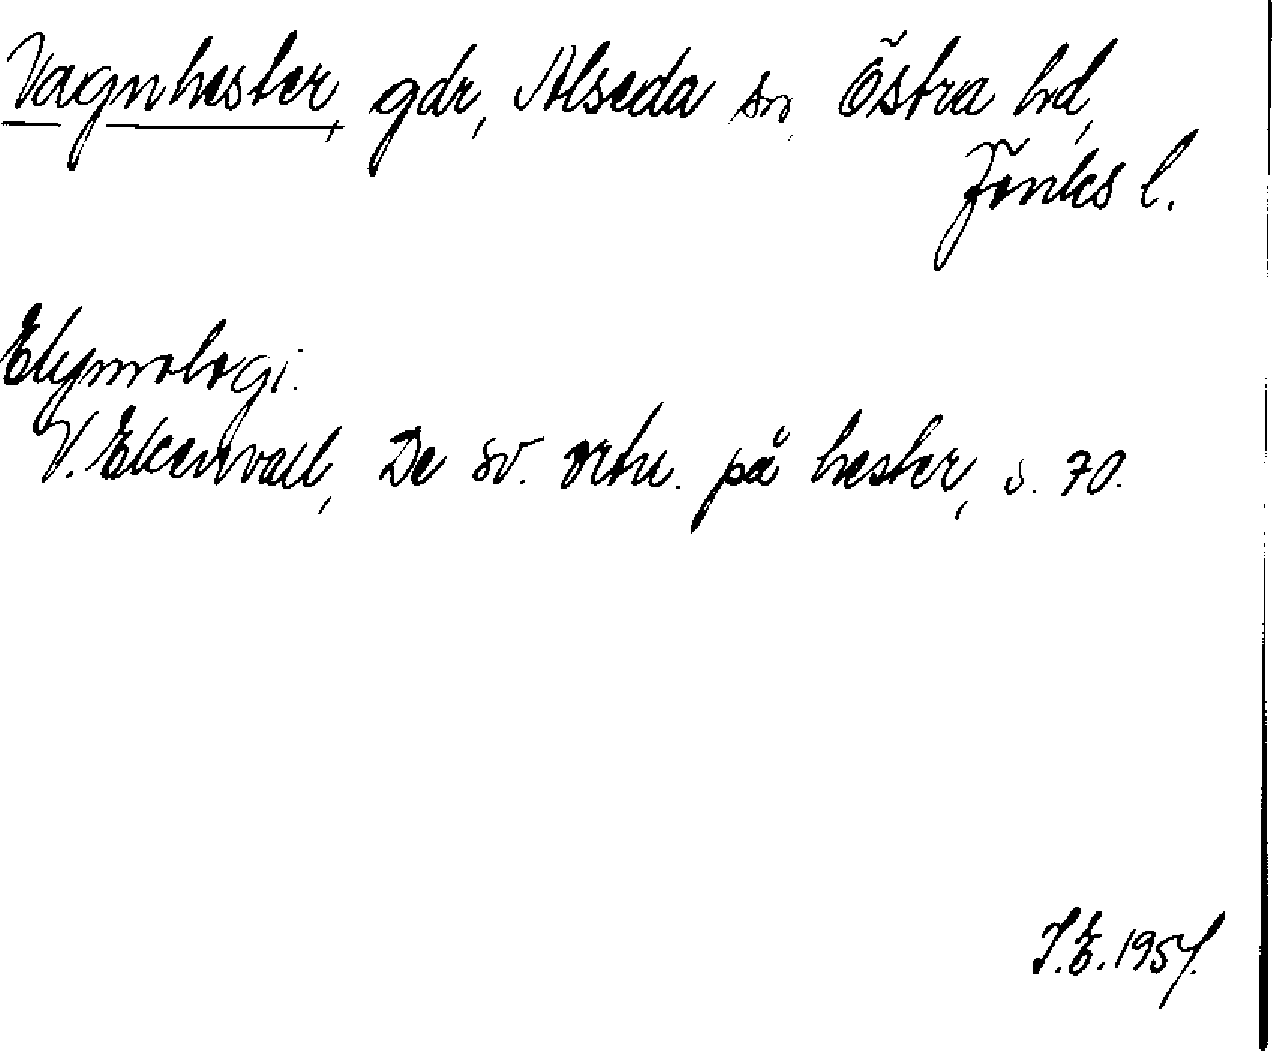 Vagnhester, gdr, Alseda sn, Östra hd,
Jönks l.
Etymologi.
V. Ekenvall, De sv. ortn. på hester, s. 70.
I.E. 1957.